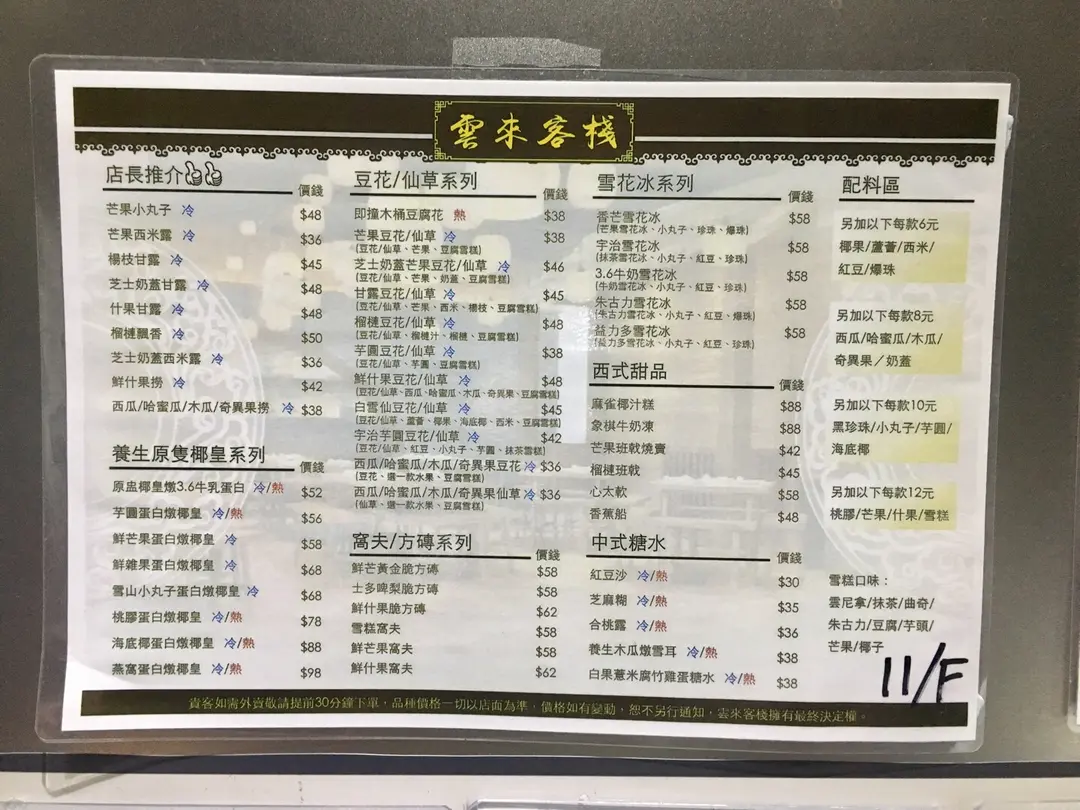 雲來客棧
店長推介
價錢
芒果小丸子 冷 $48
芒果西米露 冷 $36
楊枝甘露 冷 $45
芝士奶蓋甘露 冷 $48
什果甘露 冷 $48
榴槤飄香 冷 $50
芝士奶蓋西米露 冷 $36
鮮什果撈 冷 $42
西瓜/哈蜜瓜/木瓜/奇異果撈 冷 $38
養生原隻椰皇系列
價錢
原盅椰皇燉3.6牛乳蛋白 冷/熱 $52
芋圓蛋白燉椰皇 冷/熱 $56
鮮芒果蛋白燉椰皇 冷 $58
鮮雜果蛋白燉椰皇 冷 $68
雪山小丸子蛋白燉椰皇 冷 $68
桃膠蛋白燉椰皇 冷/熱 $78
海底椰蛋白燉椰皇 冷/熱 $88
燕窩蛋白燉椰皇 冷/熱 $98
豆花/仙草系列
價錢
即撞木桶豆腐花 熱 $38
芒果豆花/仙草 冷 $38
(豆花/仙草、芒果、豆腐雪糕)
芝士奶蓋芒果豆花/仙草 冷 $46
(豆花/仙草、芒果、奶蓋、豆腐雪糕)
甘露豆花/仙草 冷 $45
(豆花/仙草、芒果、西米、楊枝、豆腐雪糕)
榴槤豆花/仙草 冷 $48
(豆花/仙草、榴槤汁、榴槤、豆腐雪糕)
芋圓豆花/仙草 冷 $38
(豆花/仙草、芋圓、豆腐雪糕)
鮮什果豆花/仙草 冷 $48
(豆花/仙草、西瓜、哈蜜瓜、木瓜、奇異果、豆腐雪糕)
白雪仙豆花/仙草 冷 $45
(豆花/仙草、蘆薈、椰果、海底椰、西米、豆腐雪糕)
宇治芋圓豆花/仙草 冷 $42
(豆花/仙草、紅豆、小丸子、芋圓、抹茶雪糕)
西瓜/哈蜜瓜/木瓜/奇異果豆花 冷 $36
(豆花、選一款水果、豆腐雪糕)
西瓜/哈蜜瓜/木瓜/奇異果仙草 冷 $36
(仙草、選一款水果、豆腐雪糕)
窩夫/方磚系列
價錢
鮮芒黃金脆方磚 $58
士多啤梨脆方磚 $58
鮮什果脆方磚 $62
雪糕窩夫 $58
鮮芒果窩夫 $58
鮮什果窩夫 $62
雪花冰系列
價錢
香芒雪花冰 $58
(芒果雪花冰、小丸子、珍珠、爆珠)
宇治雪花冰 $58
(抹茶雪花冰、小丸子、紅豆、珍珠)
3.6牛奶雪花冰 $58
(牛奶雪花冰、小丸子、紅豆、珍珠)
朱古力雪花冰 $58
(朱古力雪花冰、小丸子、紅豆、爆珠)
益力多雪花冰 $58
(益力多雪花冰、小丸子、紅豆、珍珠)
西式甜品
價錢
麻雀椰汁糕 $88
象棋牛奶凍 $88
芒果班戟燒賣 $42
榴槤班戟 $45
心太軟 $58
香蕉船 $48
中式糖水
價錢
紅豆沙 冷/熱 $30
芝麻糊 冷/熱 $35
合桃露 冷/熱 $36
養生木瓜燉雪耳 冷/熱 $38
白果薏米腐竹雞蛋糖水 冷/熱 $38
配料區
另加以下每款6元
椰果/蘆薈/西米/
紅豆/爆珠
另加以下每款8元
西瓜/哈蜜瓜/木瓜/
奇異果／奶蓋
另加以下每款10元
黑珍珠/小丸子/芋圓/
海底椰
另加以下每款12元
桃膠/芒果/什果/雪糕
雪糕口味：
雲尼拿/抹茶/曲奇/
朱古力/豆腐/芋頭/
芒果/椰子
11/F
貴客如需外賣敬請提前30分鐘下單，品種價格一切以店面為準，價格如有變動，恕不另行通知，雲來客棧擁有最終決定權。